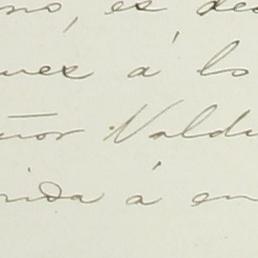 no, es dec
uez á lo
eñor Vald
rida á en